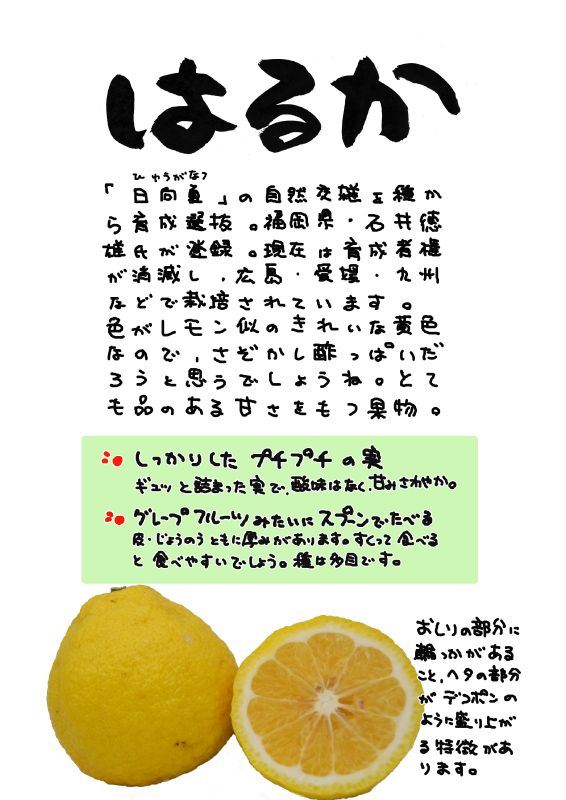 はるか
ひゅうがなつ
「日向夏」の自然交雑の種か
ら育成選抜。福岡県・石井徳
雄氏が登録。現在は育成者権
が消滅し、広島・愛媛・九州
などで栽培されています。
色がレモン似のきれいな黄色
なので、さぞかし酸っぱいだ
ろうと思うでしょうね。とて
も品のある甘さをもつ果物。
しっかりした プチプチ の実
ギュッと詰まった実で、酸味はなく、甘みさわやか。
グレープフルーツみたいにスプーンでたべる
皮・じょうのうともに厚みがあります。すくって食べる
と食べやすいでしょう。種は多目です。
おしりの部分に
輪っかがある
こと、ヘタの部分
がデコポンの
ように盛り上が
る特徴があ
ります。